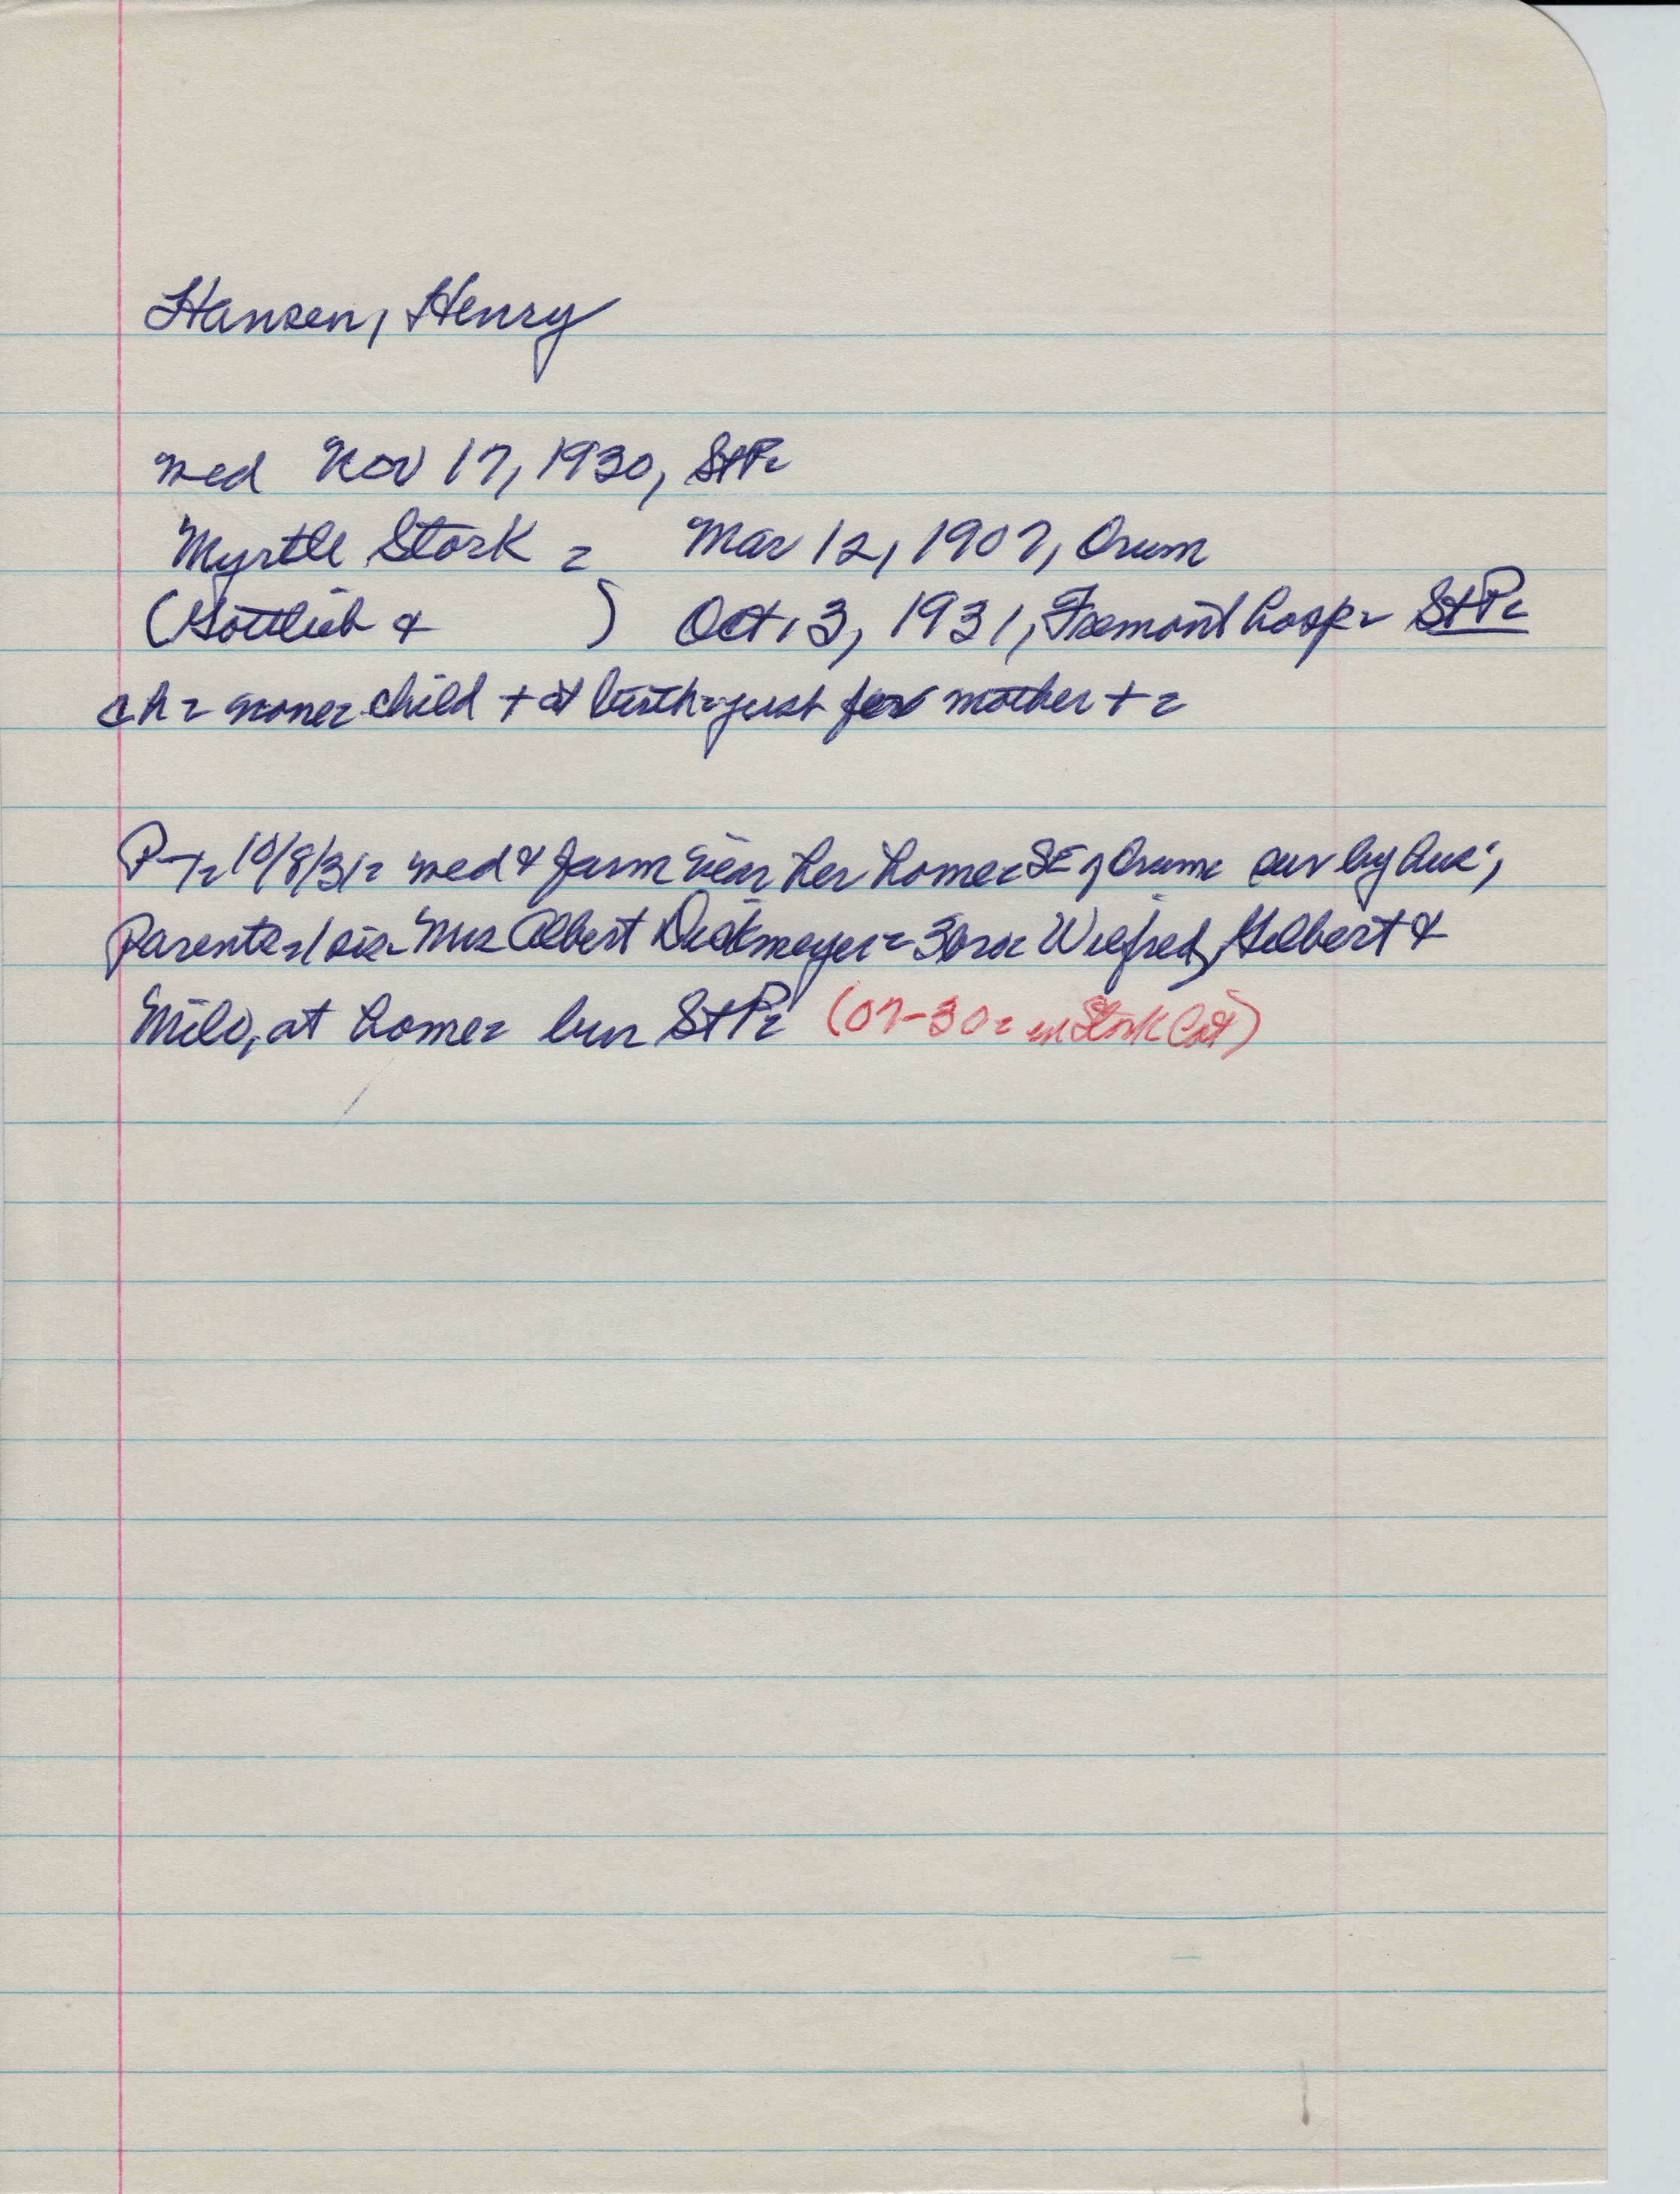 Hansen, Henry
wed Nov 17, 1930, StP=
Myrtle Stork = Mar 12, 1907, Orum
(Gottlieb & ) Oct. 3, 1931, Fremont hosp= StP=
ch= none= child + at birth= just for mother +=
P-+= 10/8/31= wed & farm near her home= SE of Orum= sur by hus',
Parents= 1 sis= Mrs Albert Dickmeyer= 3 bros= Wilfred, Gilbert &
Milo, at home= bur StP= (07-30= in Stork List)